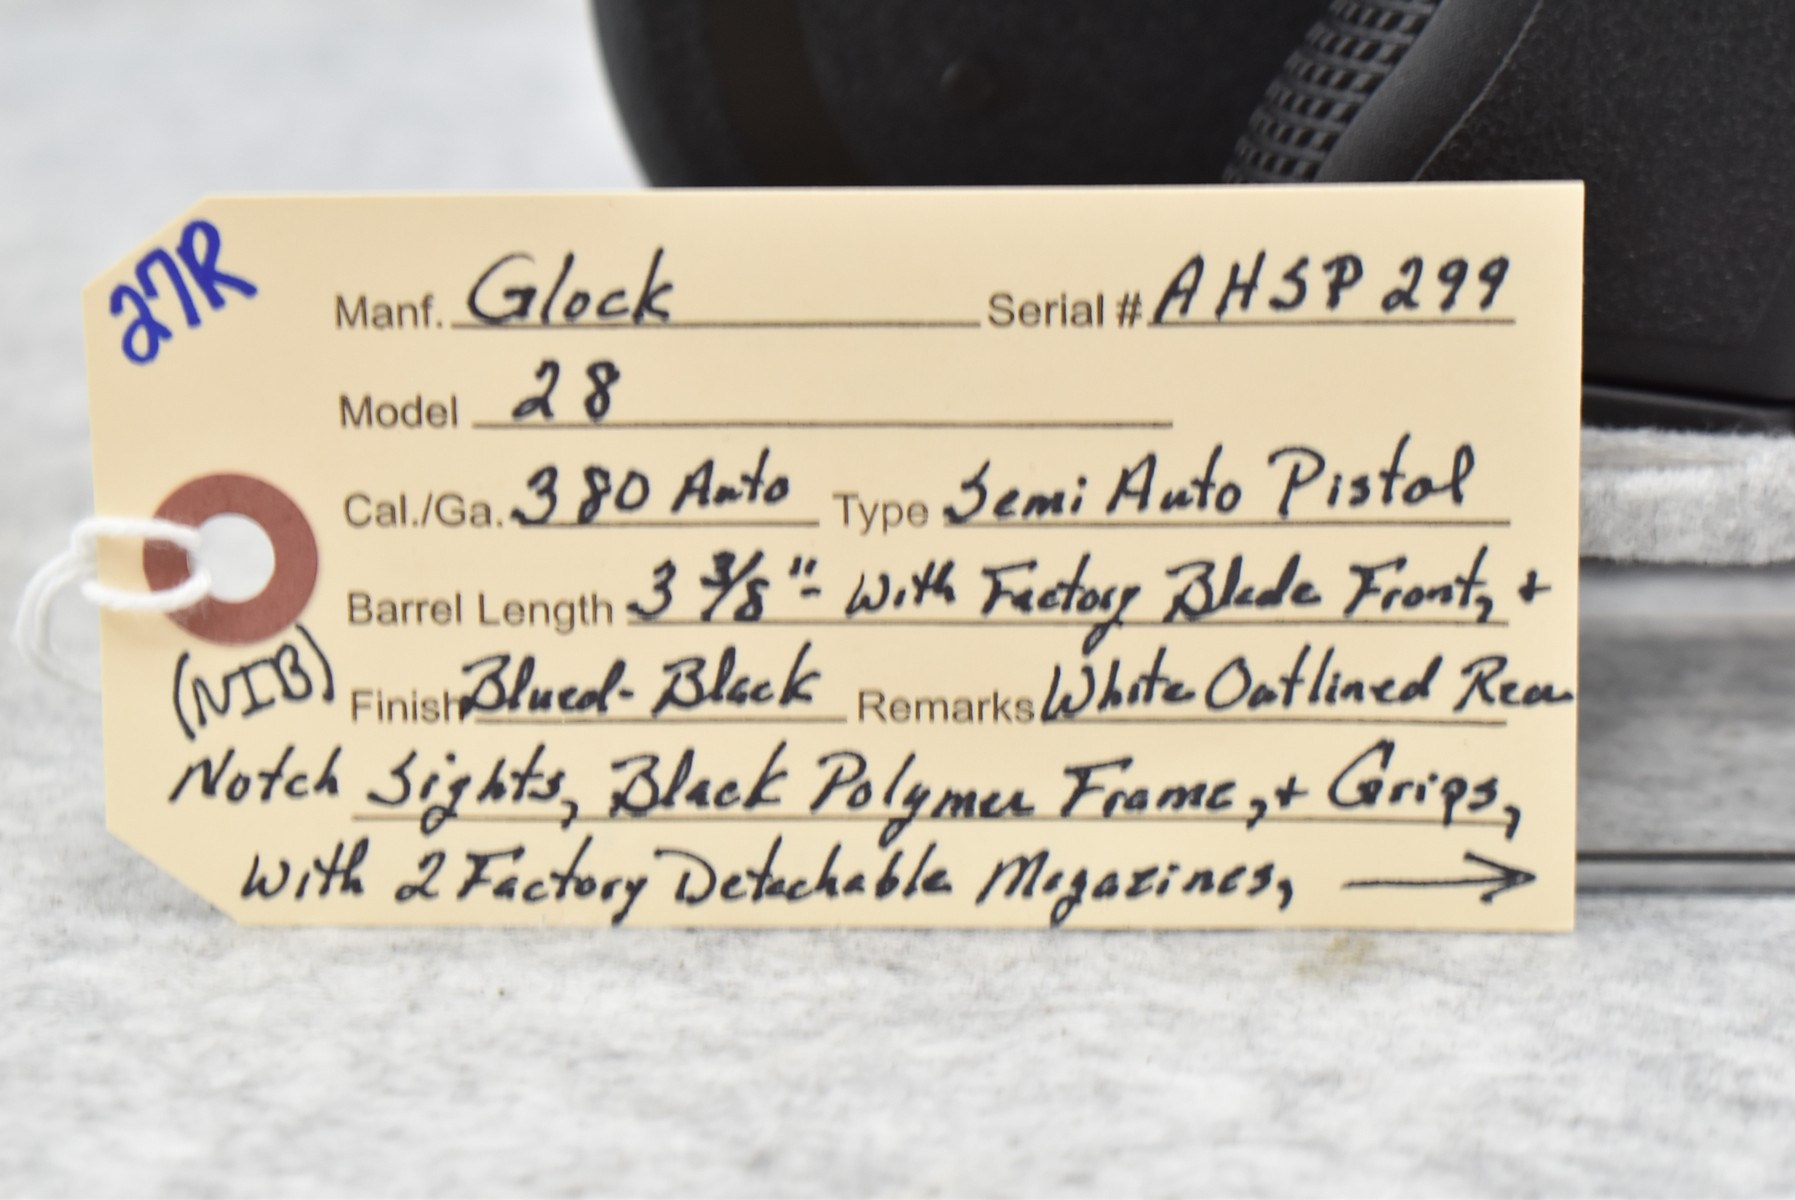 27R
Manf. Glock Serial # AHSP 299
Model 28
Cal./Ga. 380 Auto Type Semi Auto Pistol
Barrel Length 3 3/8" - With Factory Blade Front, +
(NIB) Finish Blued - Black Remarks White Outlined Rear
Notch Sights, Black Polymer Frame, + Grips,
With 2 Factory Detachable Magazines, →